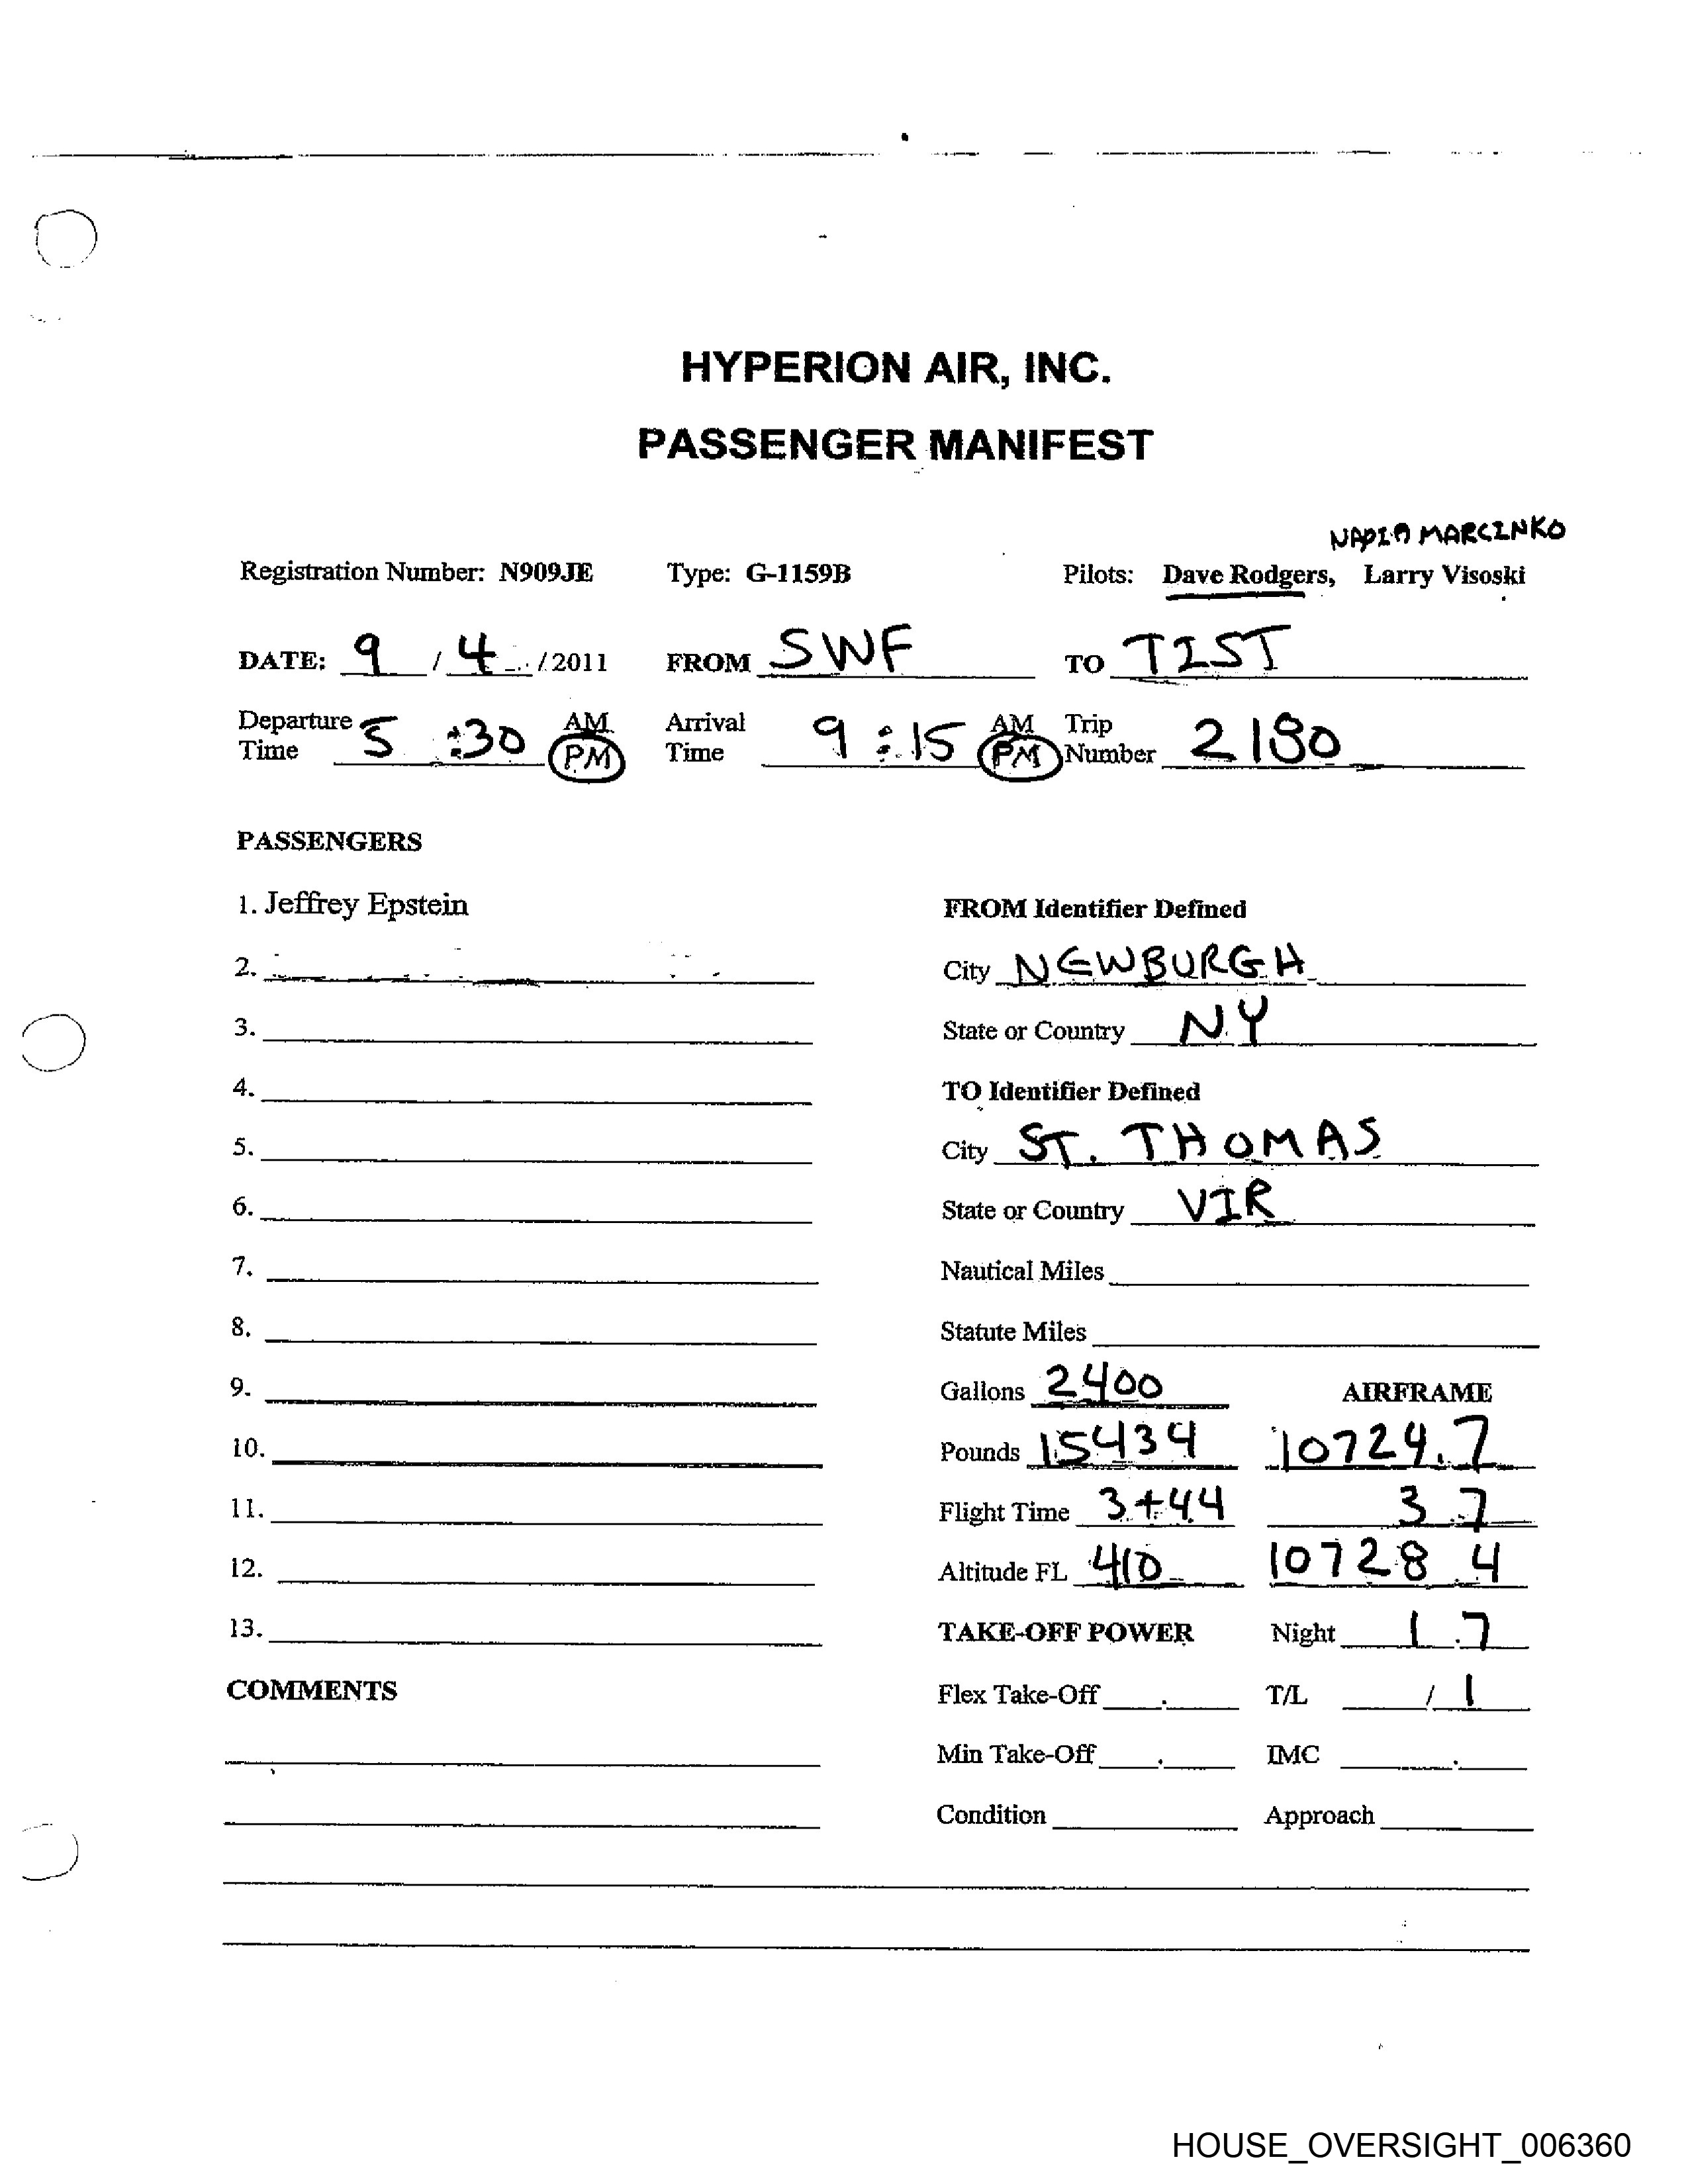 HYPERION AIR, INC.
PASSENGER MANIFEST
NADIA MARCINKO
Registration Number: N909JE Type: G-1159B Pilots: Dave Rodgers, Larry Visoski
DATE: 9 / 4 / 2011 FROM SWF TO TIST
Departure Time 5 :30 AM PM Arrival Time 9 : 15 AM PM Trip Number 2180
PASSENGERS
1. Jeffrey Epstein FROM Identifier Defined
2. City NEWBURGH
3. State or Country NY
4. TO Identifier Defined
5. City ST. THOMAS
6. State or Country VIR
7. Nautical Miles
8. Statute Miles
9. Gallons 2400 AIRFRAME
10. Pounds 15434 10724.7
11. Flight Time 3+44 3.7
12. Altitude FL 410 10728.4
13. TAKE-OFF POWER Night 1.7
COMMENTS Flex Take-Off . T/L / 1
Min Take-Off . IMC .
Condition Approach
HOUSE_OVERSIGHT_006360